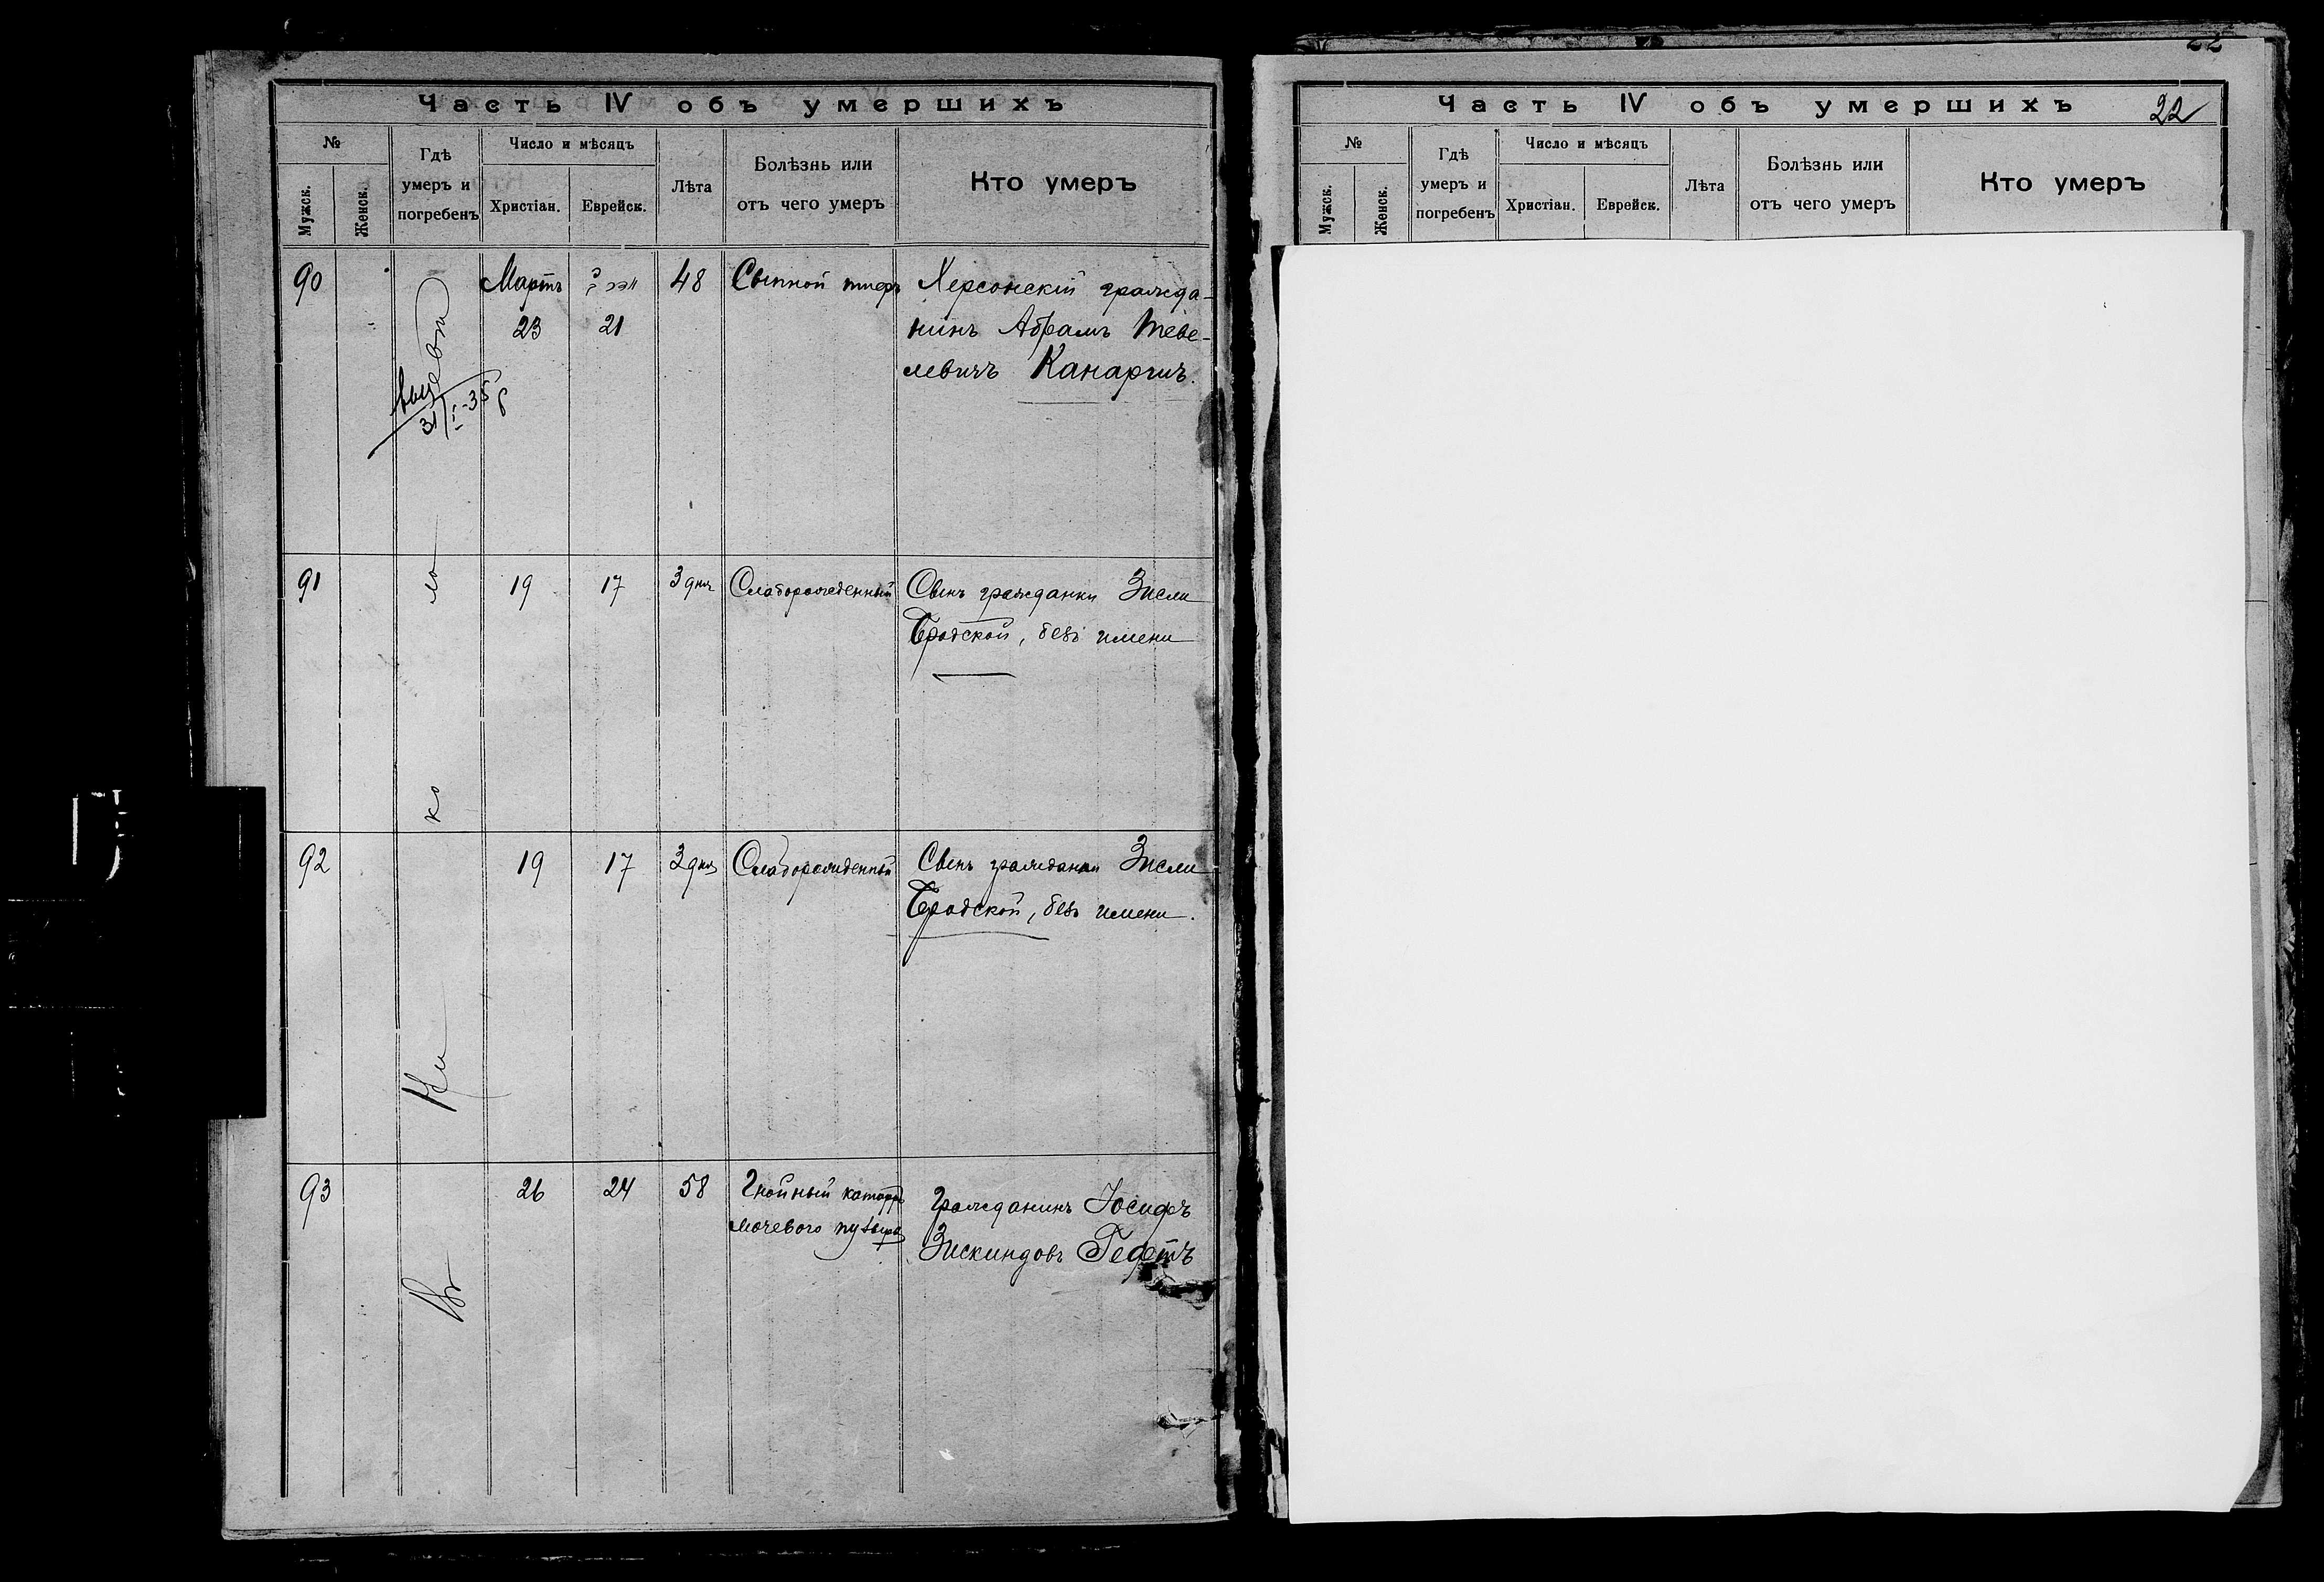 Часть IV объ умершихъ
№
Мужск.
Женск.
Гдѣ
умеръ и
погребенъ
Число и мѣсяцъ
Христіан.
Еврейск.
Лѣта
Болѣзнь или
отъ чего умеръ
Кто умеръ
90
Мартъ
23
21
48
Сыпной тифъ
Херсонскій гражда-
нинъ Абрамъ Теве-
левичъ Канаричъ.
31/I-35
91
19
17
3 дня
Слаборожденный
Сынъ гражданки Зисли
Бродской, безъ имени
92
19
17
3 дня
Слаборожденный
Сынъ гражданки Зисли
Бродской, безъ имени.
93
26
24
58
Гнойный катарръ
мочевого пузыря
Гражданинъ Іосифъ
Зискиндовъ Гефтъ
Въ Ни ко ла
Часть IV объ умершихъ
22
№
Мужск.
Женск.
Гдѣ
умеръ и
погребенъ
Число и мѣсяцъ
Христіан.
Еврейск.
Лѣта
Болѣзнь или
отъ чего умеръ
Кто умеръ